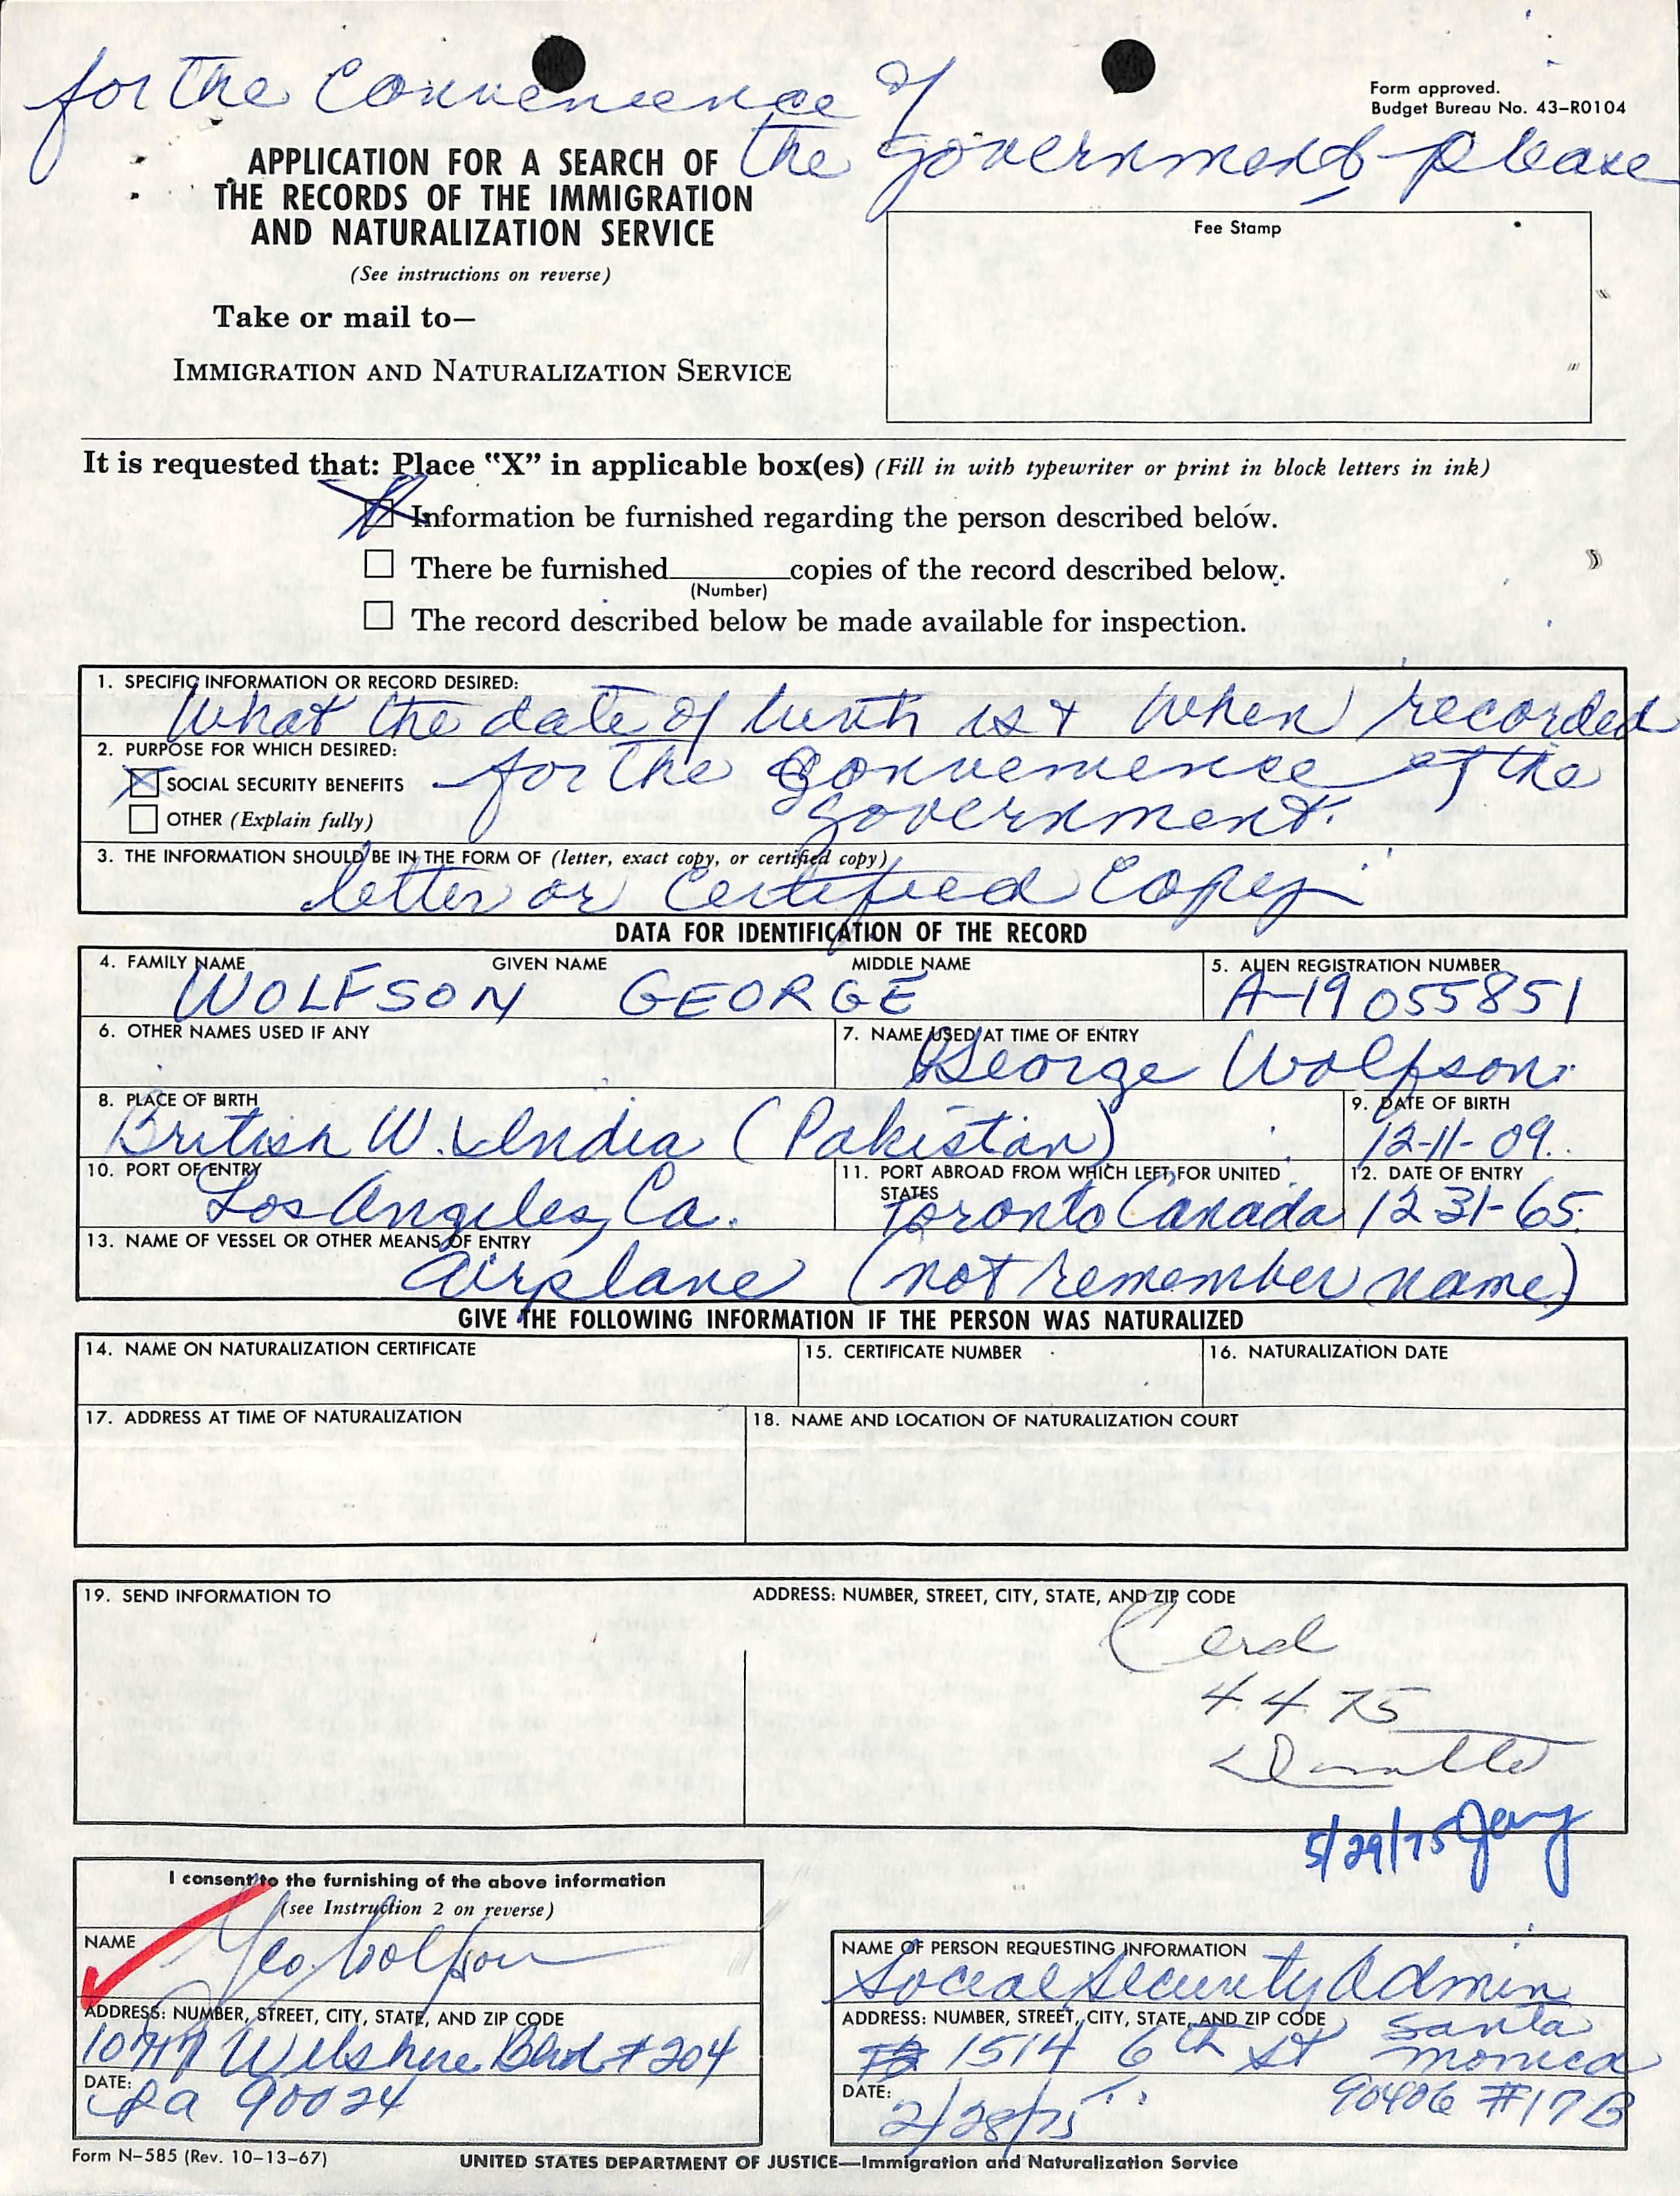 for the Convenience of
the Government please
Form approved.
Budget Bureau No. 43–R0104
APPLICATION FOR A SEARCH OF
THE RECORDS OF THE IMMIGRATION
AND NATURALIZATION SERVICE
(See instructions on reverse)
Take or mail to—
IMMIGRATION AND NATURALIZATION SERVICE
Fee Stamp
It is requested that: Place "X" in applicable box(es) (Fill in with typewriter or print in block letters in ink)
Information be furnished regarding the person described below.
There be furnished copies of the record described below.
(Number)
The record described below be made available for inspection.
1. SPECIFIC INFORMATION OR RECORD DESIRED:
What the date of birth is & when recorded
2. PURPOSE FOR WHICH DESIRED:
SOCIAL SECURITY BENEFITS – for the Convenience of the
government.
OTHER (Explain fully)
3. THE INFORMATION SHOULD BE IN THE FORM OF (letter, exact copy, or certified copy)
letter or Certified Copy
DATA FOR IDENTIFICATION OF THE RECORD
4. FAMILY NAME GIVEN NAME MIDDLE NAME
WOLFSON GEORGE
5. ALIEN REGISTRATION NUMBER
A-19 055851
6. OTHER NAMES USED IF ANY
7. NAME USED AT TIME OF ENTRY
George Wolfson
8. PLACE OF BIRTH
British W. India (Pakistan)
9. DATE OF BIRTH
12-11-09.
10. PORT OF ENTRY
Los Angeles, Ca.
11. PORT ABROAD FROM WHICH LEFT FOR UNITED
STATES
Toronto Canada
12. DATE OF ENTRY
12 31-65
13. NAME OF VESSEL OR OTHER MEANS OF ENTRY
Airplane (not remember name)
GIVE THE FOLLOWING INFORMATION IF THE PERSON WAS NATURALIZED
14. NAME ON NATURALIZATION CERTIFICATE
15. CERTIFICATE NUMBER
16. NATURALIZATION DATE
17. ADDRESS AT TIME OF NATURALIZATION
18. NAME AND LOCATION OF NATURALIZATION COURT
19. SEND INFORMATION TO
ADDRESS: NUMBER, STREET, CITY, STATE, AND ZIP CODE
4.4.75
5/29/75
I consent to the furnishing of the above information
(see Instruction 2 on reverse)
NAME
Geo. Wolfson
ADDRESS: NUMBER, STREET, CITY, STATE, AND ZIP CODE
Wilshire Blvd #204
DATE:
LA 90024
NAME OF PERSON REQUESTING INFORMATION
Social Security Admin
ADDRESS: NUMBER, STREET, CITY, STATE, AND ZIP CODE
1514 6th St Santa
Monica
90406 #17B
DATE:
2/28/75
Form N–585 (Rev. 10–13–67)
UNITED STATES DEPARTMENT OF JUSTICE—Immigration and Naturalization Service